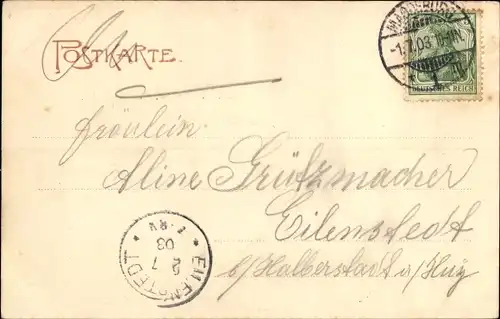 POSTKARTE.
MAGDEBURG
-1.7.03.
1
DEUTSCHES REICH
Fräulein
Aline Grützmacher
Eilenstedt
b/Halberstadt a/Huy
EILENSTEDT
2 7
03